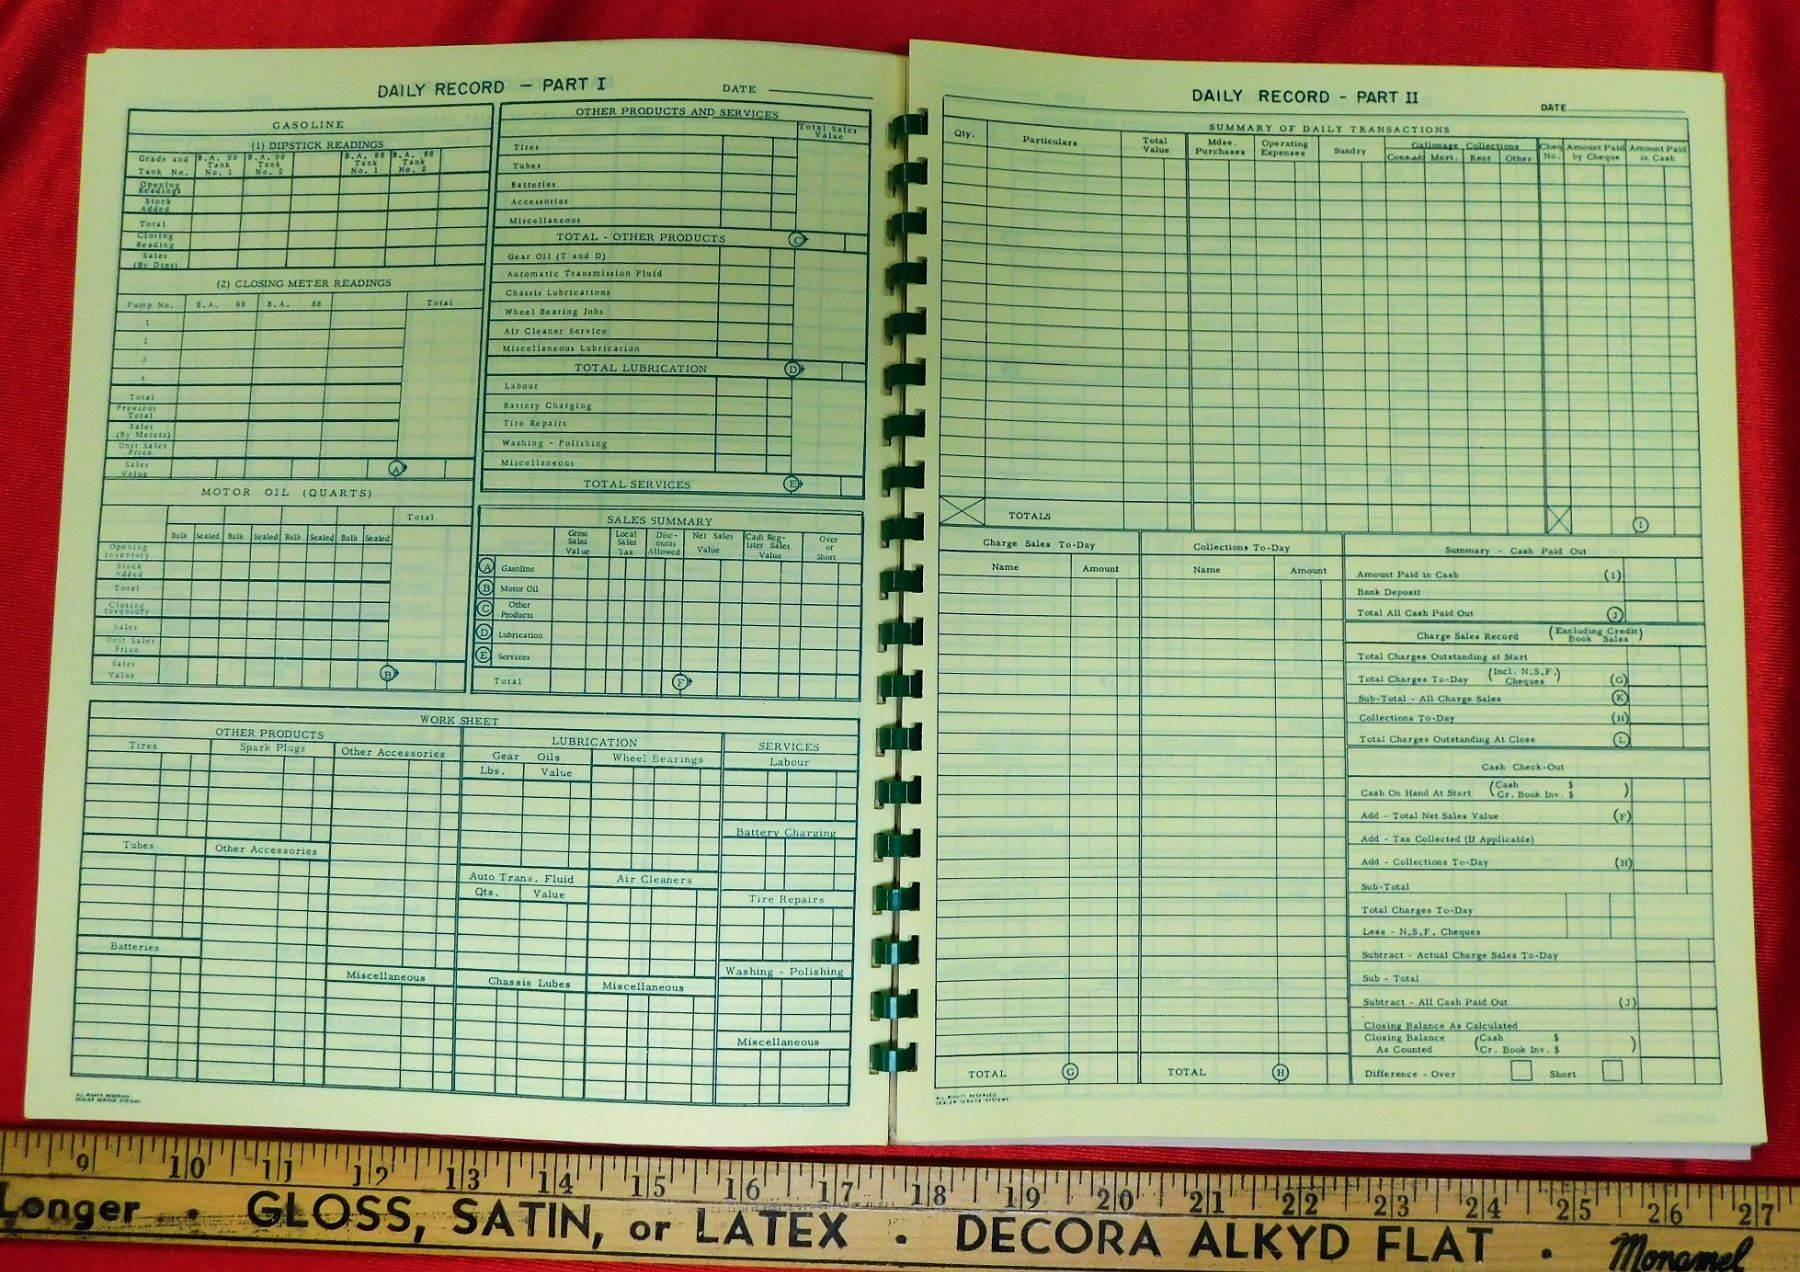 DAILY RECORD — PART I
DATE
GASOLINE
(1) DIPSTICK READINGS
Grade and Tank No.
B.A. 98 Tank No. 1
B.A. 98 Tank No. 2
B.A. 88 Tank No. 1
B.A. 88 Tank No. 2
Opening Readings
Stock Added
Total
Closing Reading
Sales (By Dips)
(2) CLOSING METER READINGS
Pump No. B.A. 98 B.A. 88 Total
1
2
3
4
Total
Previous Total
Sales (By Meters)
Unit Sales Price
Sales Value
A
MOTOR OIL (QUARTS)
Total
Bulk Sealed Bulk Sealed Bulk Sealed Bulk Sealed
Opening Inventory
Stock Added
Total
Closing Inventory
Sales
Unit Sales Price
Sales Value
B
OTHER PRODUCTS AND SERVICES
Total Sales Value
Tires
Tubes
Batteries
Accessories
Miscellaneous
TOTAL - OTHER PRODUCTS C
Gear Oil (T and D)
Automatic Transmission Fluid
Chassis Lubrications
Wheel Bearing Jobs
Air Cleaner Service
Miscellaneous Lubrication
TOTAL LUBRICATION D
Labour
Battery Charging
Tire Repairs
Washing - Polishing
Miscellaneous
TOTAL SERVICES E
SALES SUMMARY
Gross Sales Value
Local Sales Tax
Disc-ounts Allowed
Net Sales Value
Cash Reg-ister Sales Value
Over or Short
A Gasoline
B Motor Oil
C Other Products
D Lubrication
E Services
Total F
WORK SHEET
OTHER PRODUCTS
Tires
Spark Plugs
Other Accessories
Tubes
Other Accessories
Batteries
Miscellaneous
LUBRICATION
Gear Oils
Lbs. Value
Wheel Bearings
Auto Trans. Fluid
Qts. Value
Air Cleaners
Chassis Lubes
Miscellaneous
SERVICES
Labour
Battery Charging
Tire Repairs
Washing - Polishing
Miscellaneous
ALL RIGHTS RESERVED
DEALER SERVICE SYSTEMS
DAILY RECORD - PART II
DATE
SUMMARY OF DAILY TRANSACTIONS
Qty.
Particulars
Total Value
Mdse. Purchases
Operating Expenses
Sundry
Gallonage Collections
Mort. Rent Other
No.
Amount Paid by Cheque
Amount Paid in Cash
TOTALS
Charge Sales To-Day
Name Amount
TOTAL G
Collections To-Day
Name Amount
TOTAL H
Summary - Cash Paid Out
Amount Paid in Cash (I)
Bank Deposit
Total All Cash Paid Out J
Charge Sales Record (Excluding Credit Book Sales)
Total Charges Outstanding at Start
Total Charges To-Day (Incl. N.S.F. Cheques) (G)
Sub-Total - All Charge Sales K
Collections To-Day (H)
Total Charges Outstanding At Close L
Cash Check-Out
Cash On Hand At Start (Cash $
Cr. Book Inv. $ )
Add - Total Net Sales Value (F)
Add - Tax Collected (If Applicable)
Add - Collections To-Day (H)
Sub-Total
Total Charges To-Day
Less - N.S.F. Cheques
Subtract - Actual Charge Sales To-Day
Sub - Total
Subtract - All Cash Paid Out (J)
Closing Balance As Calculated
Closing Balance As Counted (Cash $
Cr. Book Inv. $ )
Difference - Over Short
ALL RIGHTS RESERVED
DEALER SERVICE SYSTEMS
9 10 11 12 13 14 15 16 17 18 19 20 21 22 23 24 25 26 27
Longer • GLOSS, SATIN, or LATEX • DECORA ALKYD FLAT • Monamel